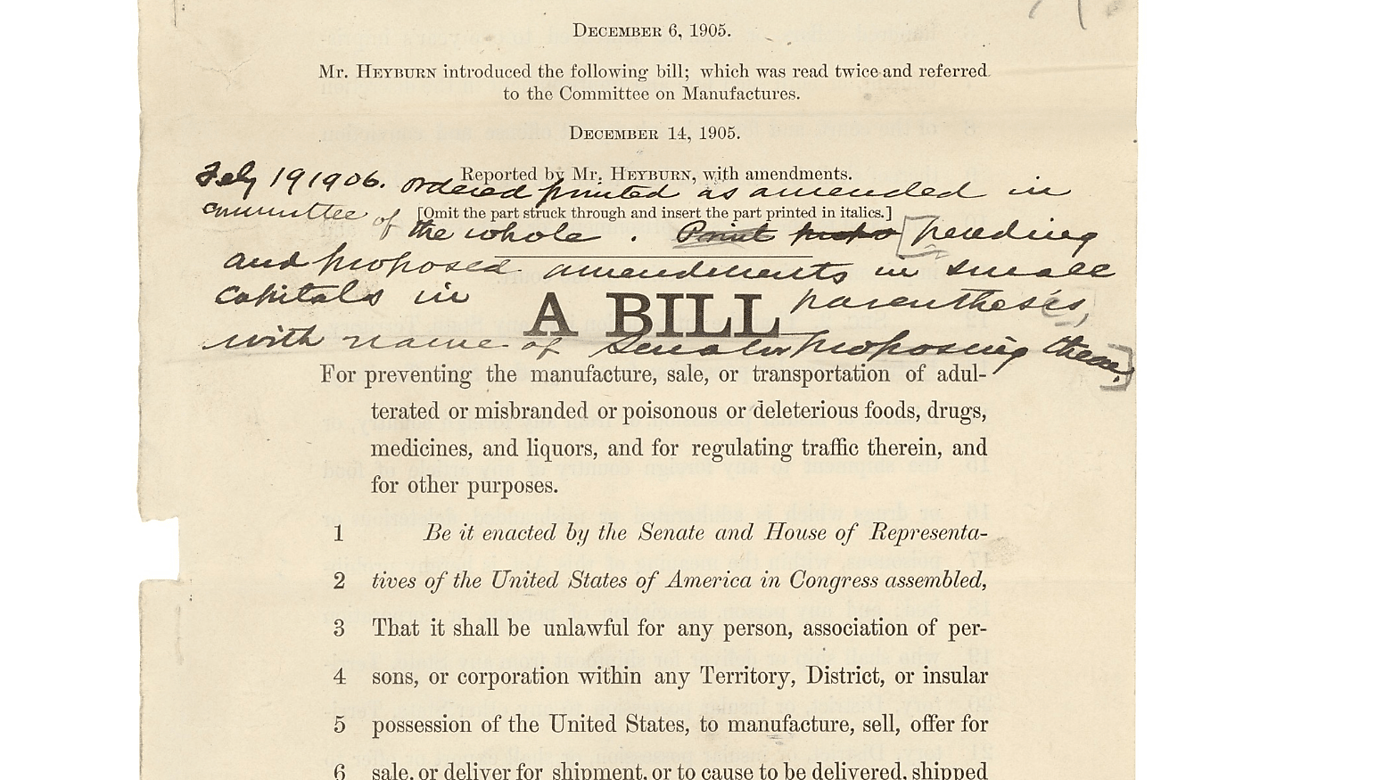 DECEMBER 6, 1905.
Mr. HEYBURN introduced the following bill; which was read twice and referred
to the Committee on Manufactures.
DECEMBER 14, 1905.
Reported by Mr. HEYBURN, with amendments.
[Omit the part struck through and insert the part printed in italics.]
Feby 19 1906. ordered printed as amended in
committee of the whole. Print [pending
and proposed amendments in small
capitals in parenthesis,
with name of Senator proposing them.]
A BILL
For preventing the manufacture, sale, or transportation of adul-
terated or misbranded or poisonous or deleterious foods, drugs,
medicines, and liquors, and for regulating traffic therein, and
for other purposes.
1 Be it enacted by the Senate and House of Representa-
2 tives of the United States of America in Congress assembled,
3 That it shall be unlawful for any person, association of per-
4 sons, or corporation within any Territory, District, or insular
5 possession of the United States, to manufacture, sell, offer for
6 sale, or deliver for shipment, or to cause to be delivered, shipped